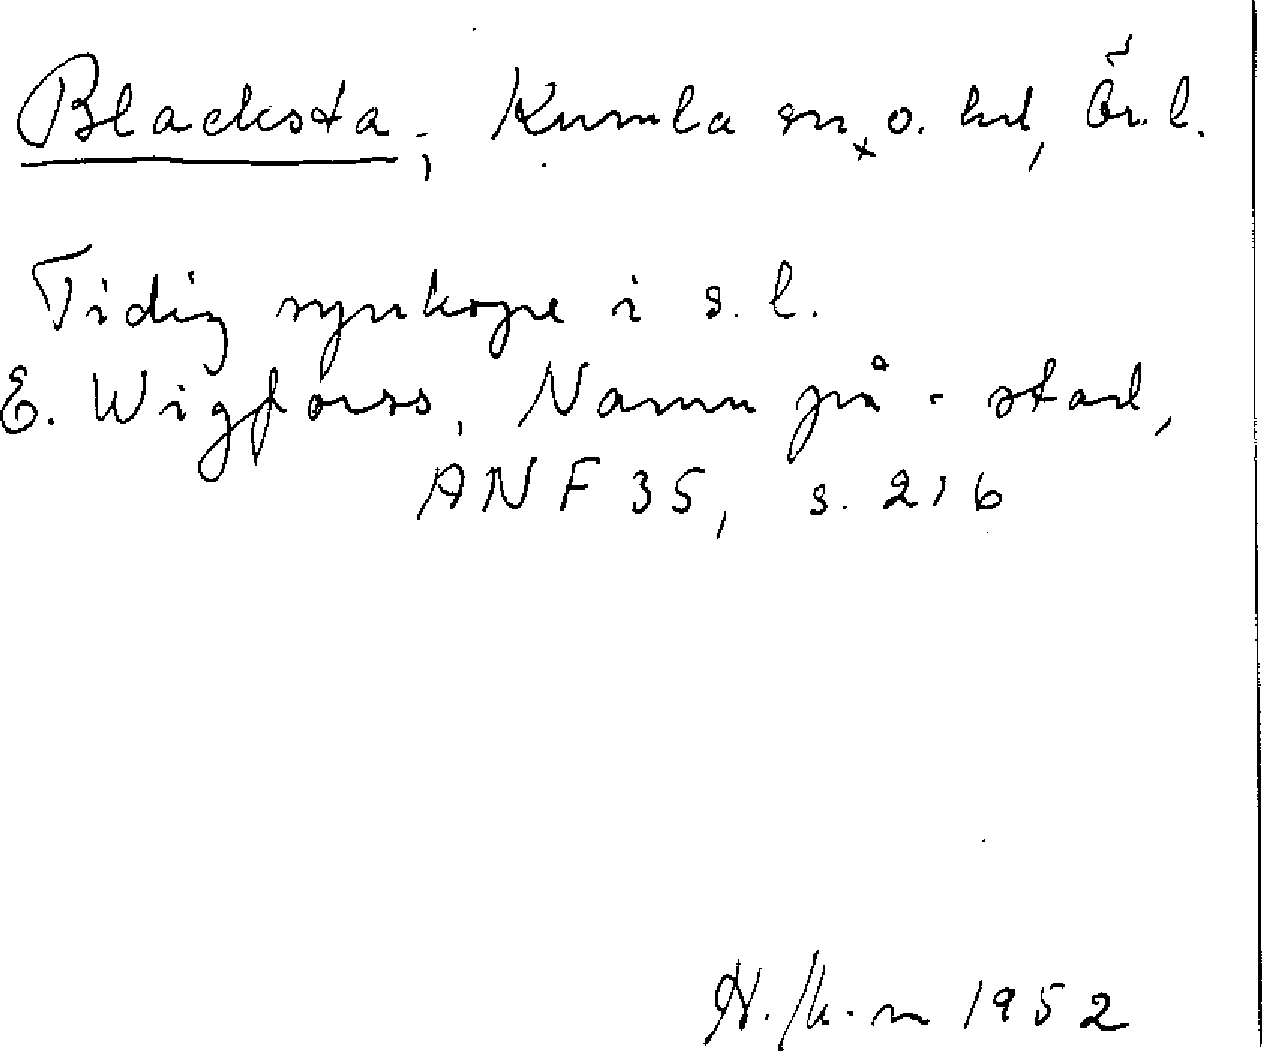 Blacksta, Kumla sn o. hd, Ör. l.
Tidig synkope i s. l.
E. Wigforss, Namn på -stad,
ANF 35, s. 216
1952